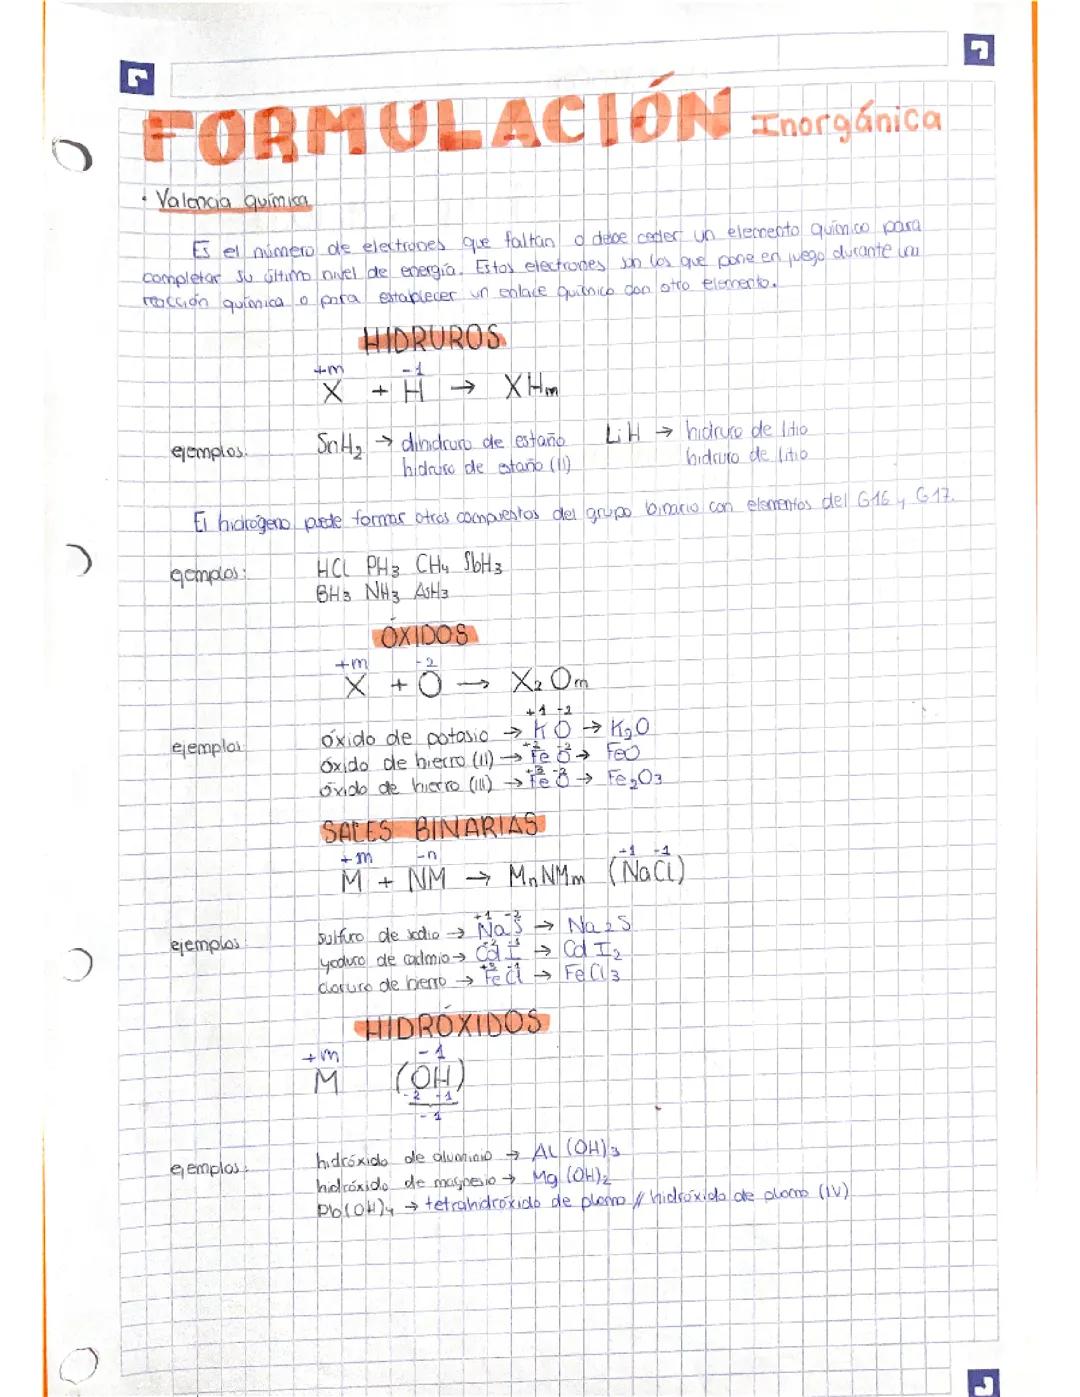 FORMULACIÓN Inorgánica
· Valencia química
Es el número de electrones que faltan o debe ceder un elemento químico para
completar su último nivel de energía. Estos electrones son los que pone en juego durante una
reacción química o para establecer un enlace químico con otro elemento.
HIDRUROS
+m -1
X + H → XHm
ejemplos. SnH2 → dihidruro de estaño LiH → hidruro de litio
hidruro de estaño (II) hidruro de litio
El hidrógeno puede formar otros compuestos del grupo binario con elementos del G16 y G17.
ejemplos: HCl PH3 CH4 SbH3
BH3 NH3 AsH3
ÓXIDOS
+m -2
X + O → X2Om
+1 -2
ejemplos óxido de potasio → K O → K2O
+2 -2
óxido de hierro (II) → Fe O → FeO
+3 -2
óxido de hierro (III) → Fe O → Fe2O3
SALES BINARIAS
+m -n -1 -1
M + NM → MnNMm (NaCl)
+1 -2
ejemplos sulfuro de sodio → Na S → Na2S
+2 -1
yoduro de cadmio → Cd I → Cd I2
+3 -1
cloruro de hierro → Fe Cl → FeCl3
HIDRÓXIDOS
+m -1
M (OH)
-2 +1
-1
ejemplos: hidróxido de aluminio → Al (OH)3
hidróxido de magnesio → Mg (OH)2
Pb(OH)4 → tetrahidróxido de plomo // hidróxido de plomo (IV)